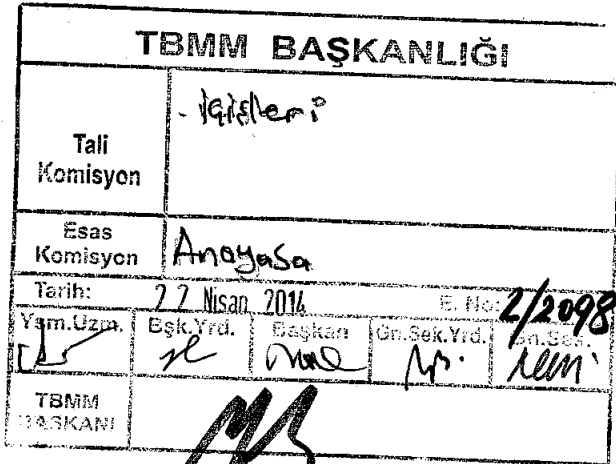 TBMM BAŞKANLIĞI
Tali Komisyon
- İçişleri
Esas Komisyon
Anayasa
Tarih: 22 Nisan 2014 E. No: 2/2098
Ysm.Uzm. Bşk.Yrd. Başkan Gn.Sek.Yrd. Gn.Sek.
TBMM BAŞKANI